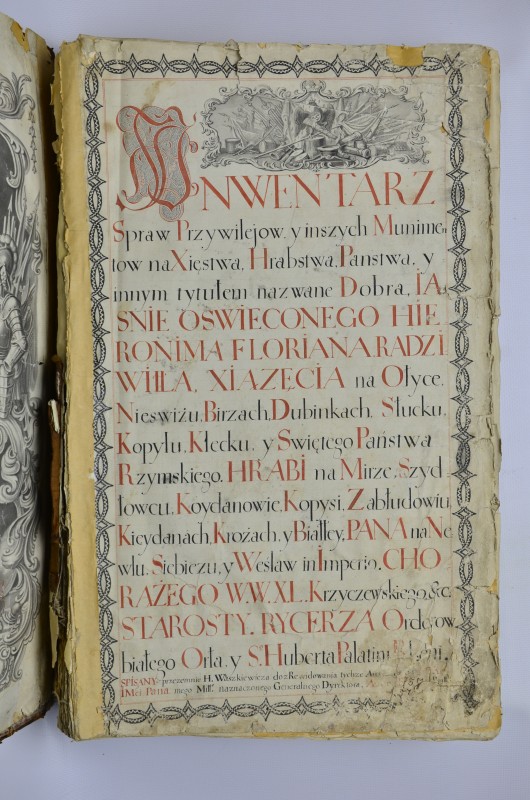 INWENTARZ
Spraw Przywilejow, y inszych Munime͠n
tow na Xięstwa, Hrabstwa, Panstwa, y
innym tytułem nazwane Dobra, IA
SNIE OSWIECONEGO HIE
RONIMA FLORIANA RADZI
WIŁŁA, XIAZĘCIA na Ołyce,
Nieswiżu, Birzach, Dubinkach, Słucku,
Kopylu, Klecku, y Swiętego Państwa
Rzymskiego, HRABI na Mirze, Szyd
łowcu, Koydanowie, Kopysi, Zabłudowiu
Kieydanach, Krożach, y Białłey, PANA na Ne
wlu, Siebieżu, y Wesław in Imperio, CHO
RAŻEGO W.W.X.L. Krzyczewskiego, &c.
STAROSTY, RYCERZA Orderow
białego Orła, y Sgo Huberta Palatini
SPISANY przezemnie H. Waszkiewicza do
IMci Pana mego Mill. naznaczonego Generalnego Dyrektora,